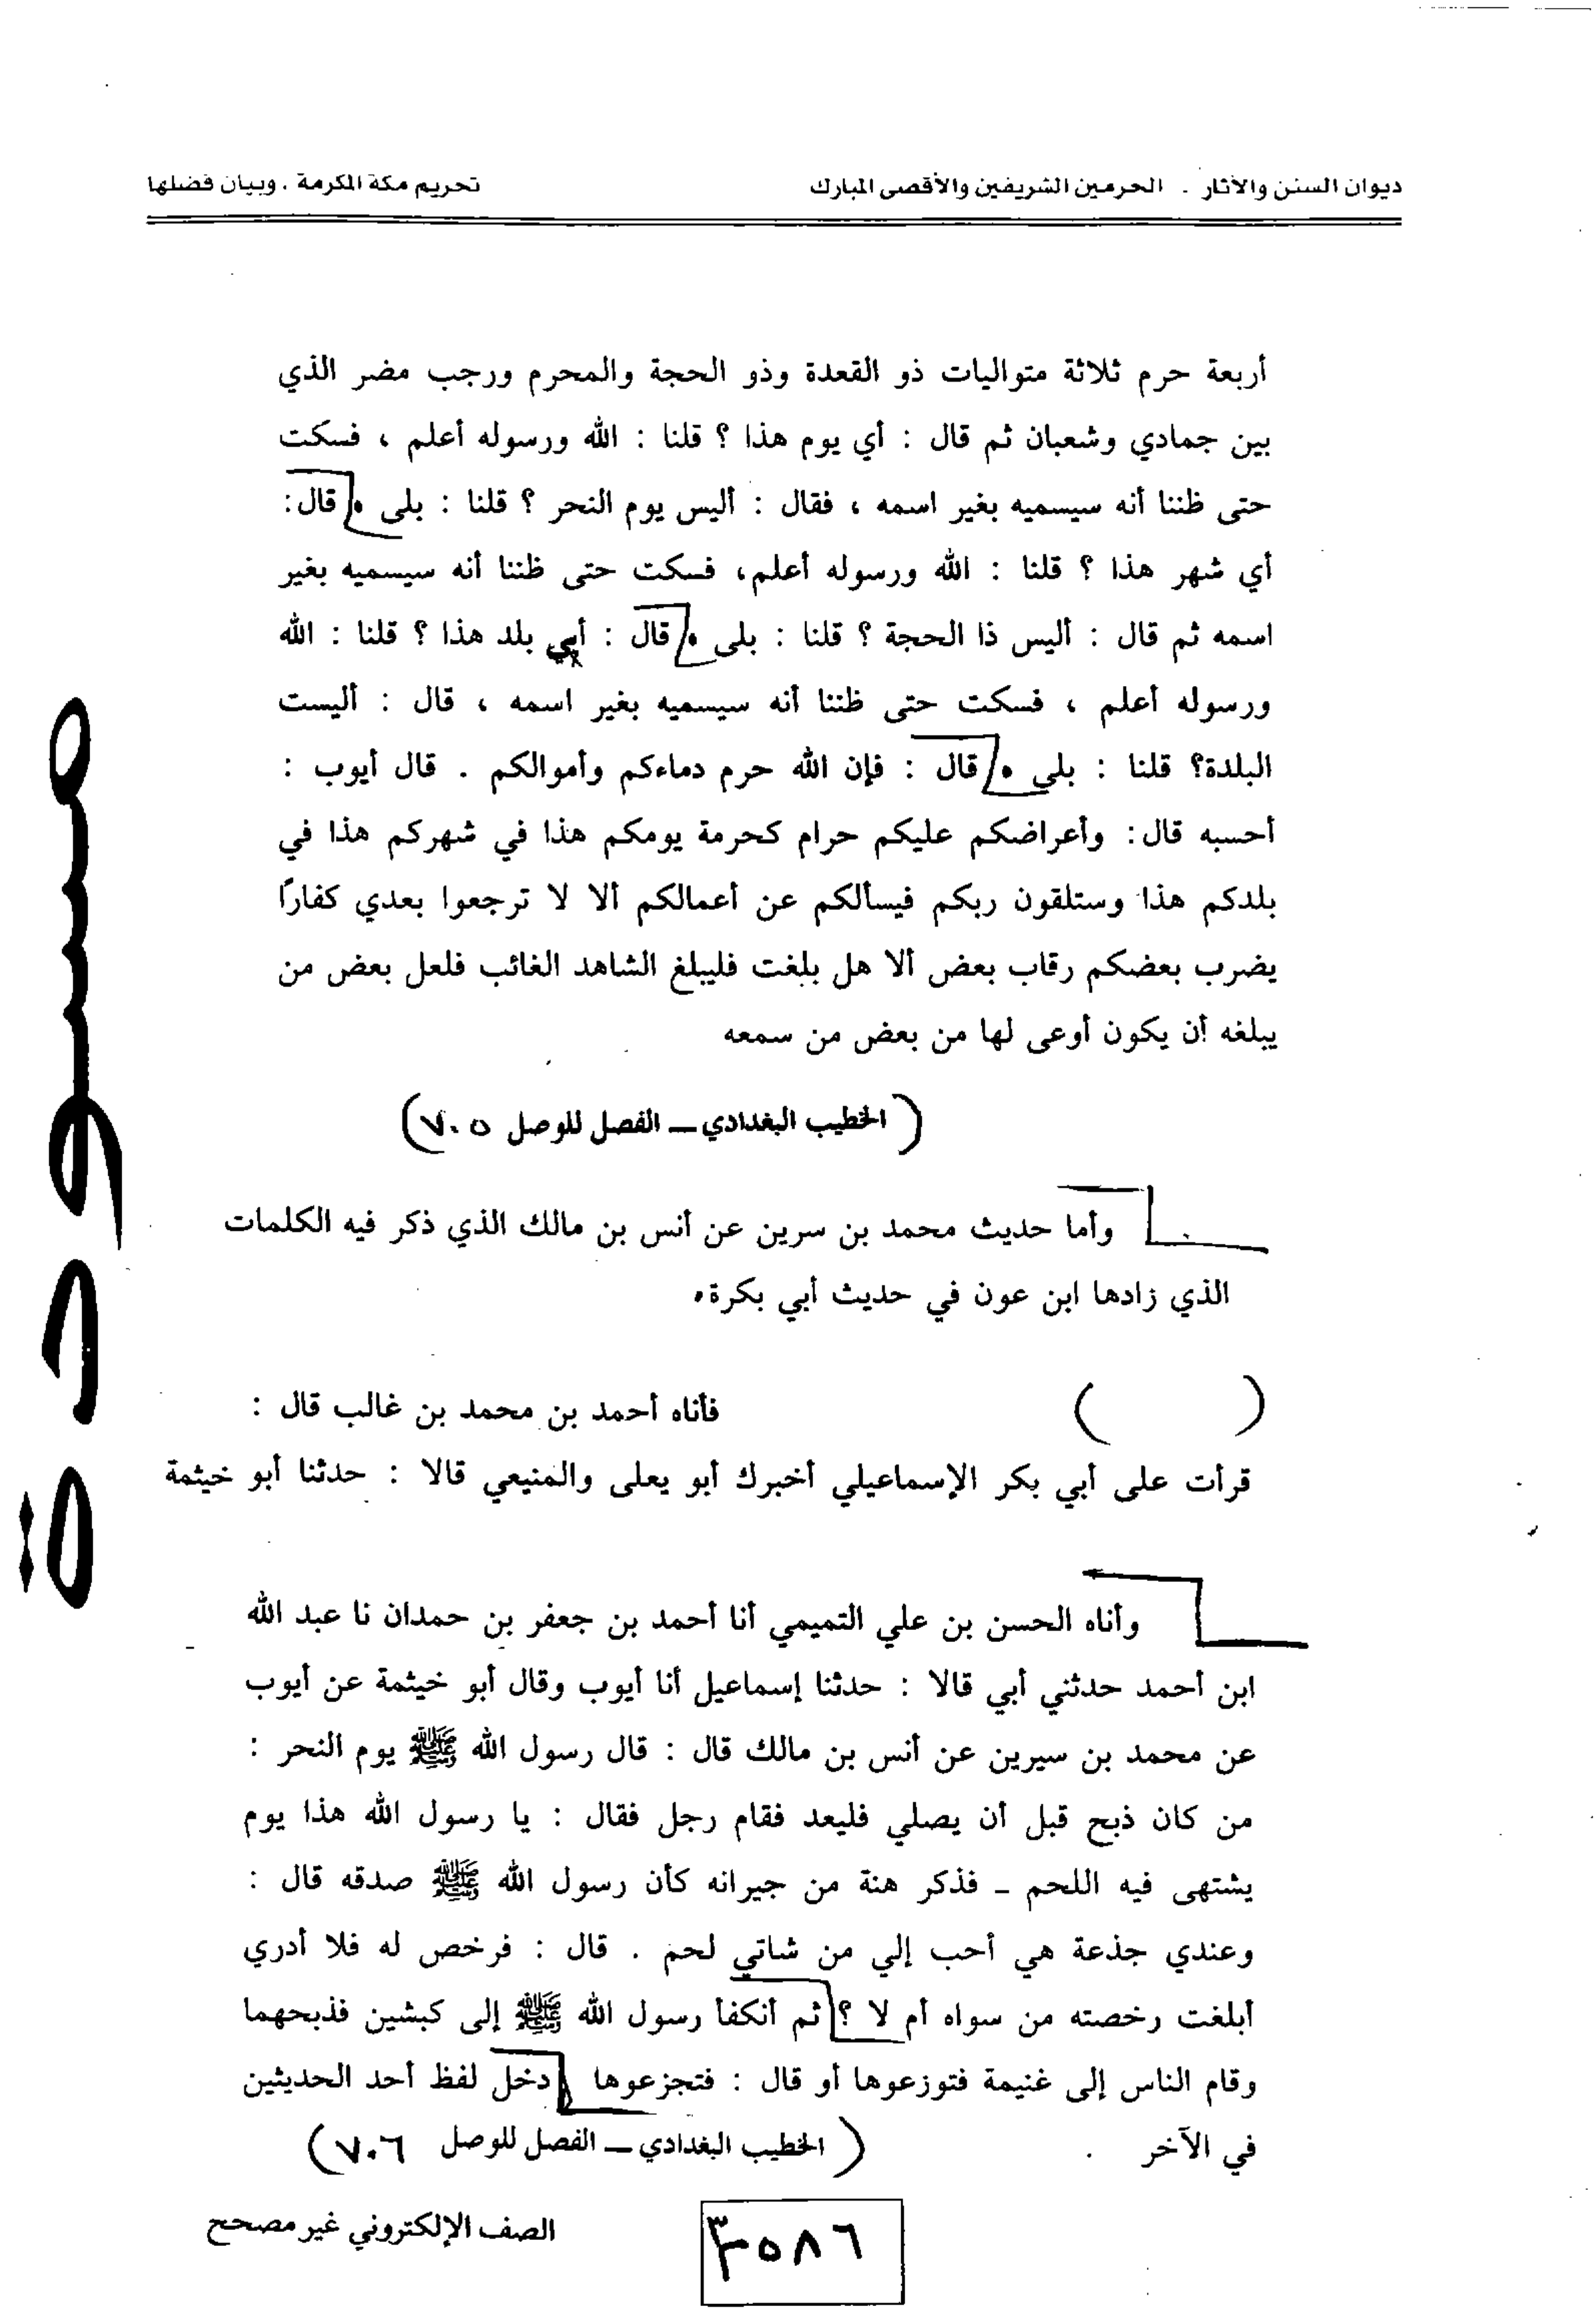 ديوان السنن والآثار . الحرمين الشريفين والأقصى المبارك
تحريم مكة المكرمة . وبيان فضلها
أربعة حرم ثلاثة متواليات ذو القعدة وذو الحجة والمحرم ورجب مضر الذي
بين جمادي وشعبان ثم قال : أي يوم هذا ؟ قلنا : الله ورسوله أعلم ، فسكت
حتى ظننا أنه سيسميه بغير اسمه ، فقال : أليس يوم النحر ؟ قلنا : بلى . قال :
أي شهر هذا ؟ قلنا : الله ورسوله أعلم، فسكت حتى ظننا أنه سيسميه بغير
اسمه ثم قال : أليس ذا الحجة ؟ قلنا : بلى . قال : أي بلد هذا ؟ قلنا : الله
ورسوله أعلم ، فسكت حتى ظننا أنه سيسميه بغير اسمه ، قال : أليست
البلدة؟ قلنا : بلى . قال : فإن الله حرم دماءكم وأموالكم . قال أيوب :
أحسبه قال: وأعراضكم عليكم حرام كحرمة يومكم هذا في شهركم هذا في
بلدكم هذا وستلقون ربكم فيسألكم عن أعمالكم ألا لا ترجعوا بعدي كفارًا
يضرب بعضكم رقاب بعض ألا هل بلغت فليبلغ الشاهد الغائب فلعل بعض من
يبلغه أن يكون أوعى لها من بعض من سمعه
(الخطيب البغدادي – الفصل للوصل ٧٠٥)
وأما حديث محمد بن سرين عن أنس بن مالك الذي ذكر فيه الكلمات
الذي زادها ابن عون في حديث أبي بكرة.
( ) فأناه أحمد بن محمد بن غالب قال :
قرأت على أبي بكر الإسماعيلي أخبرك أبو يعلى والمنيعي قالا : حدثنا أبو خيثمة
وأناه الحسن بن علي التميمي أنا أحمد بن جعفر بن حمدان نا عبد الله
ابن أحمد حدثني أبي قالا : حدثنا إسماعيل أنا أيوب وقال أبو خيثمة عن أيوب
عن محمد بن سيرين عن أنس بن مالك قال : قال رسول الله ﷺ يوم النحر :
من كان ذبح قبل أن يصلي فليعد فقام رجل فقال : يا رسول الله هذا يوم
يشتهى فيه اللحم - فذكر هنة من جيرانه كأن رسول الله ﷺ صدقه قال :
وعندي جذعة هي أحب إلي من شاتي لحم . قال : فرخص له فلا أدري
أبلغت رخصته من سواه أم لا ؟ ثم أنكفأ رسول الله ﷺ إلى كبشين فذبحهما
وقام الناس إلى غنيمة فتوزعوها أو قال : فتجزعوها دخل لفظ أحد الحديثين
في الآخر .
(الخطيب البغدادي – الفصل للوصل ٧٠٦)
٣٥٨٦
الصف الإلكتروني غير مصحح
مسودة